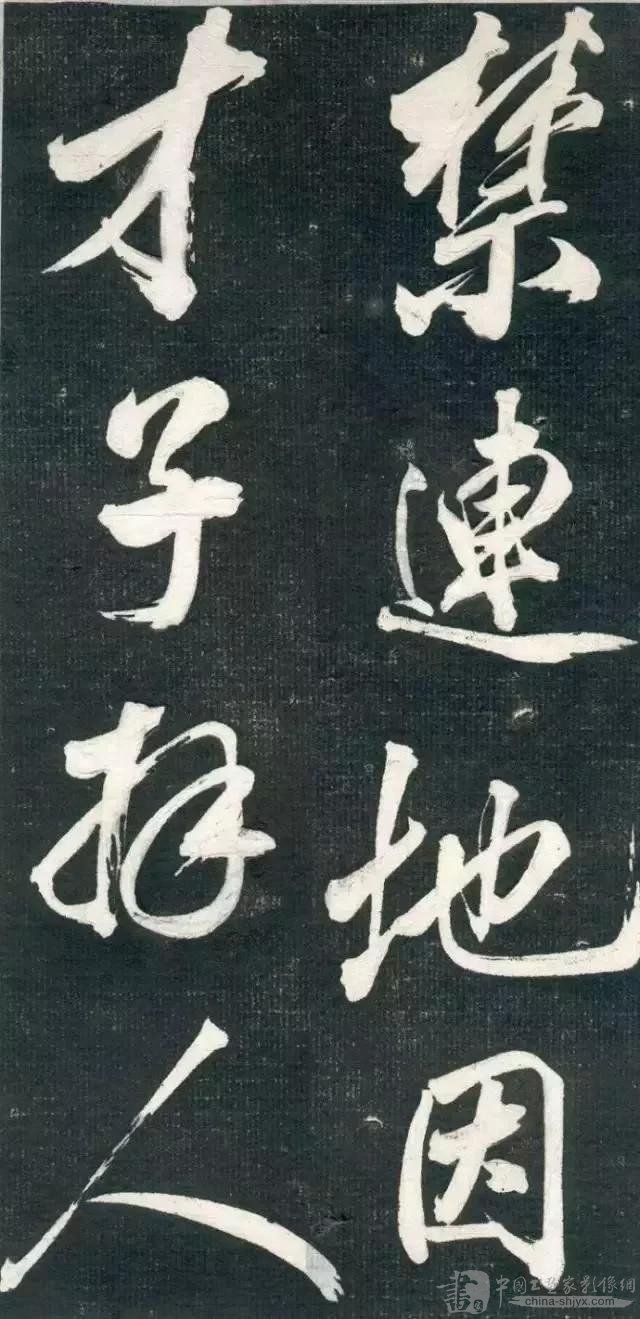 禁連地因
才子人
中国书画家影像網
china-shjyx.com